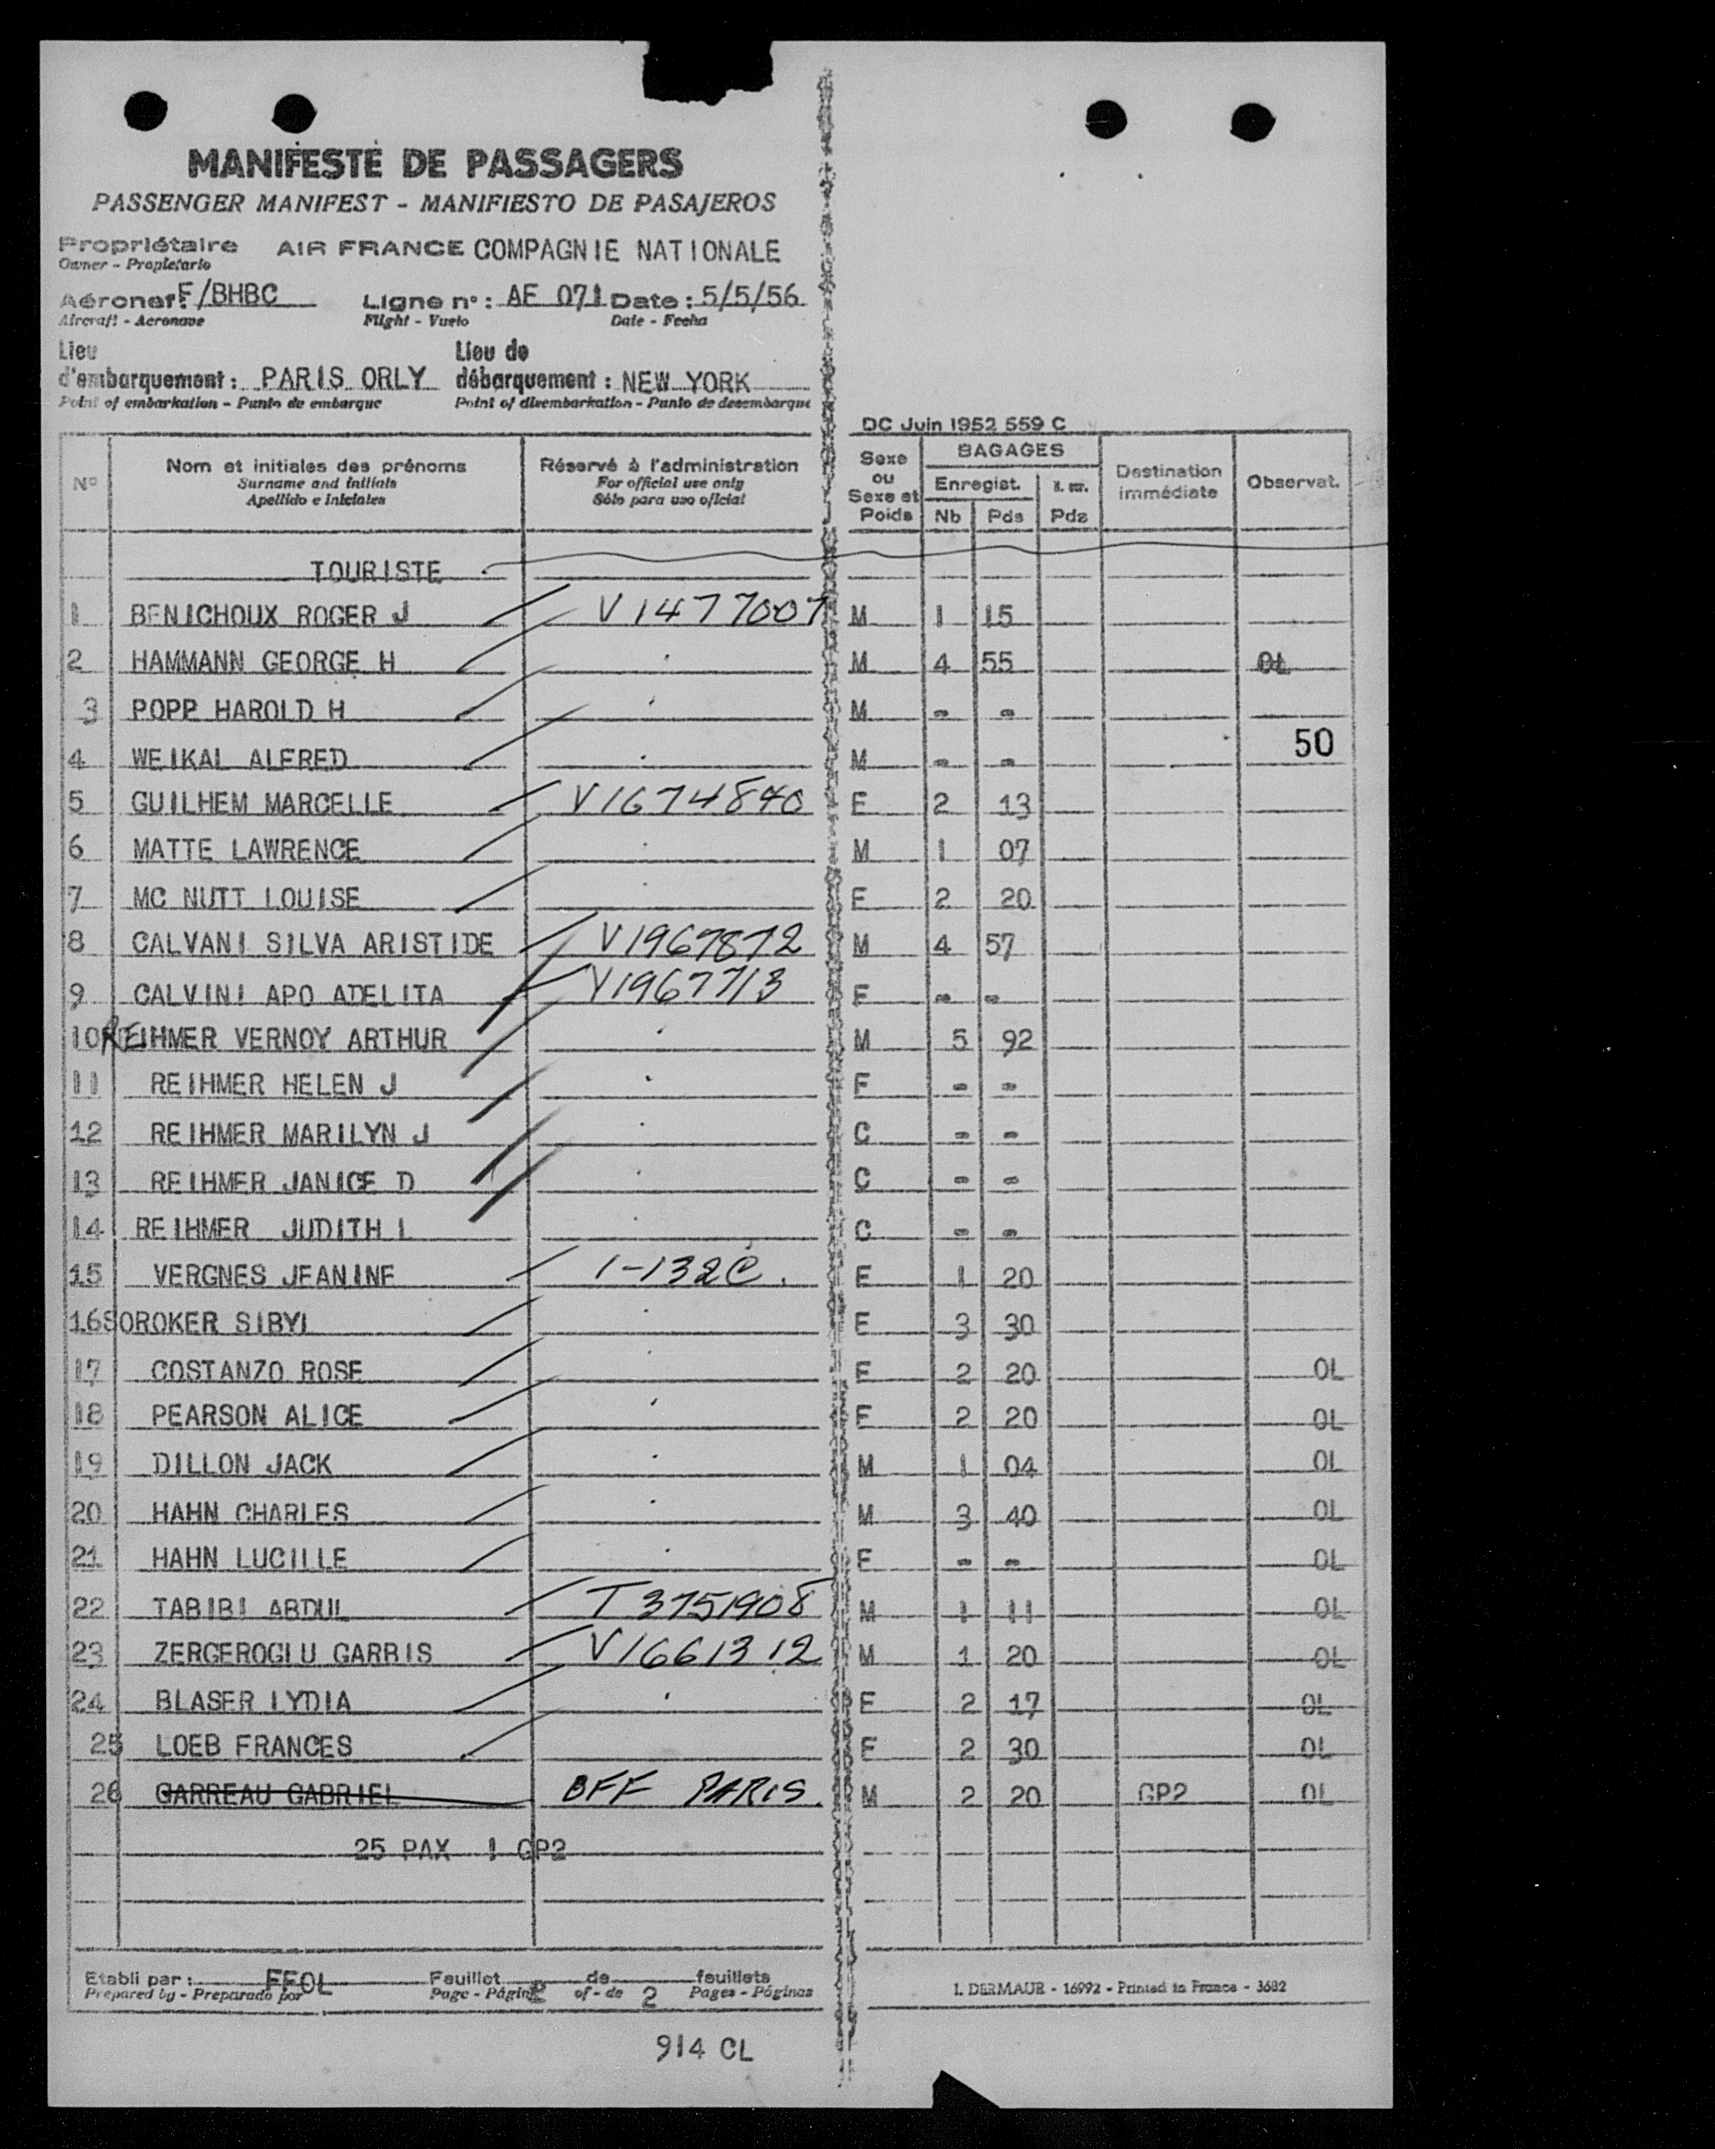 MANIFESTE DE PASSAGERS
PASSENGER MANIFEST - MANIFIESTO DE PASAJEROS
Propriétaire AIR FRANCE COMPAGNIE NATIONALE
Owner - Propietario
Aéronef: F/BHBC Ligne n°: AF 071 Date: 5/5/56
Aircraft - Aeronave Flight - Vuelo Date - Fecha
Lieu d'embarquement: PARIS ORLY Lieu de débarquement: NEW YORK
Point of embarkation - Punto de embarque Point of disembarkation - Punto de desembarque
DC Juin 1952 559 C
N° Nom et initiales des prénoms Réservé à l'administration Sexe ou Sexe et Poids BAGAGES Destination immédiate Observat.
Surname and initials For official use only Enregist.
Apellido e iniciales Sólo para uso oficial Nb Pds Pds
TOURISTE
1 BENICHOUX ROGER J V 1477007 M 1 15
2 HAMMANN GEORGE H M 4 55 OL
3 POPP HAROLD H M - -
50
4 WEIKAL ALFRED M - -
5 GUILHEM MARCELLE V1674840 F 2 13
6 MATTE LAWRENCE M 1 07
7 MC NUTT LOUISE F 2 20
8 CALVANI SILVA ARISTIDE V1967872 M 4 57
9 CALVINI APO ADELITA V1967713 F - -
10 REIHMER VERNOY ARTHUR M 5 92
11 REIHMER HELEN J F - -
12 REIHMER MARILYN J C - -
13 REIHMER JANICE D C - -
14 REIHMER JUDITH L C - -
15 VERGNES JEANINE 1-132C. F 1 20
16 SOROKER SIBYL F 3 30
17 COSTANZO ROSE F 2 20 OL
18 PEARSON ALICE F 2 20 OL
19 DILLON JACK M 1 04 OL
20 HAHN CHARLES M 3 40 OL
21 HAHN LUCILLE F - - OL
22 TABIBI ABDUL T 3751908 M 1 11 OL
23 ZERGEROGLU GARBIS V1661312 M 1 20 OL
24 BLASER LYDIA F 2 17 OL
25 LOEB FRANCES F 2 30 OL
26 GARREAU GABRIEL OFF PARIS. M 2 20 GP2 OL
25 PAX 1 GP2
Etabli par: FFOL Feuillet 2 de 2 feuillets
Prepared by - Preparado por Page - Página of - de Pages - Páginas
I. DERMAUR - 16992 - Printed in France - 3682
914 CL